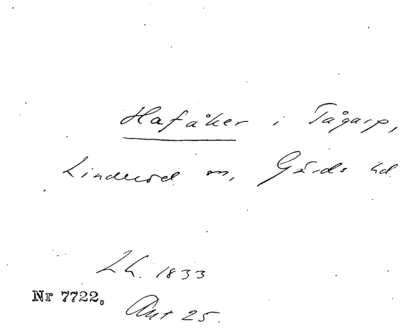 Hafåker i Tågarp,
Linderöd sn, Gärds hd
Lh. 1833
Nr 7722.
Ant 25.